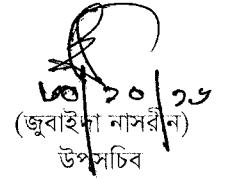 ৩০/১০/১৬
(জুবাইদা নাসরীন)
উপসচিব